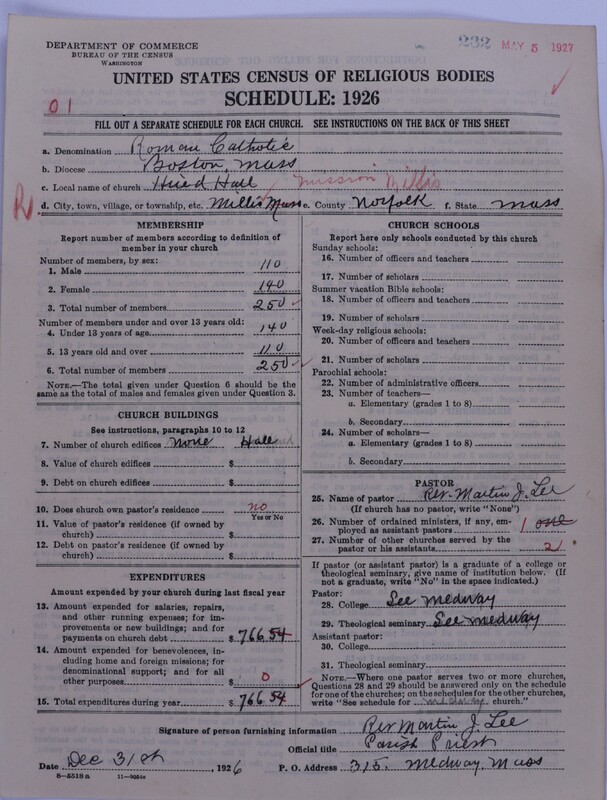 DEPARTMENT OF COMMERCE
BUREAU OF THE CENSUS
WASHINGTON
232 MAY 5 1927
UNITED STATES CENSUS OF RELIGIOUS BODIES
SCHEDULE: 1926
01
FILL OUT A SEPARATE SCHEDULE FOR EACH CHURCH. SEE INSTRUCTIONS ON THE BACK OF THIS SHEET
a. Denomination Roman Catholic
b. Diocese Boston, Mass
c. Local name of church Hall mission Millis
d. City, town, village, or township, etc. Millis Mass e. County Norfolk f. State Mass
MEMBERSHIP
Report number of members according to definition of member in your church
Number of members, by sex:
1. Male 110
2. Female 140
3. Total number of members 250
Number of members under and over 13 years old:
4. Under 13 years of age 140
5. 13 years old and over 110
6. Total number of members 250
NOTE.—The total given under Question 6 should be the same as the total of males and females given under Question 3.
CHURCH BUILDINGS
See instructions, paragraphs 10 to 12
7. Number of church edifices None Hall
8. Value of church edifices $
9. Debt on church edifices $
10. Does church own pastor's residence no
Yes or No
11. Value of pastor's residence (if owned by church) $
12. Debt on pastor's residence (if owned by church) $
EXPENDITURES
Amount expended by your church during last fiscal year
13. Amount expended for salaries, repairs, and other running expenses; for improvements or new buildings; and for payments on church debt $ 766.54
14. Amount expended for benevolences, including home and foreign missions; for denominational support; and for all other purposes $ 0
15. Total expenditures during year $ 766.54
CHURCH SCHOOLS
Report here only schools conducted by this church
Sunday schools:
16. Number of officers and teachers
17. Number of scholars
Summer vacation Bible schools:
18. Number of officers and teachers
19. Number of scholars
Week-day religious schools:
20. Number of officers and teachers
21. Number of scholars
Parochial schools:
22. Number of administrative officers
23. Number of teachers—
a. Elementary (grades 1 to 8)
b. Secondary
24. Number of scholars—
a. Elementary (grades 1 to 8)
b. Secondary
PASTOR
25. Name of pastor Rev. Martin J. Lee
(If church has no pastor, write "None")
26. Number of ordained ministers, if any, employed as assistant pastors 1 one
27. Number of other churches served by the pastor or his assistants 2
If pastor (or assistant pastor) is a graduate of a college or theological seminary, give name of institution below. (If not a graduate, write "No" in the space indicated.)
Pastor:
28. College See Medway
29. Theological seminary See Medway
Assistant pastor:
30. College
31. Theological seminary
NOTE.—Where one pastor serves two or more churches, Questions 28 and 29 should be answered only on the schedule for one of the churches; on the schedules for the other churches, write "See schedule for Medway church."
Signature of person furnishing information Rev Martin J. Lee
Official title Parish Priest
Date Dec 31st, 1926 P. O. Address 315. Medway, Mass
8—5518a